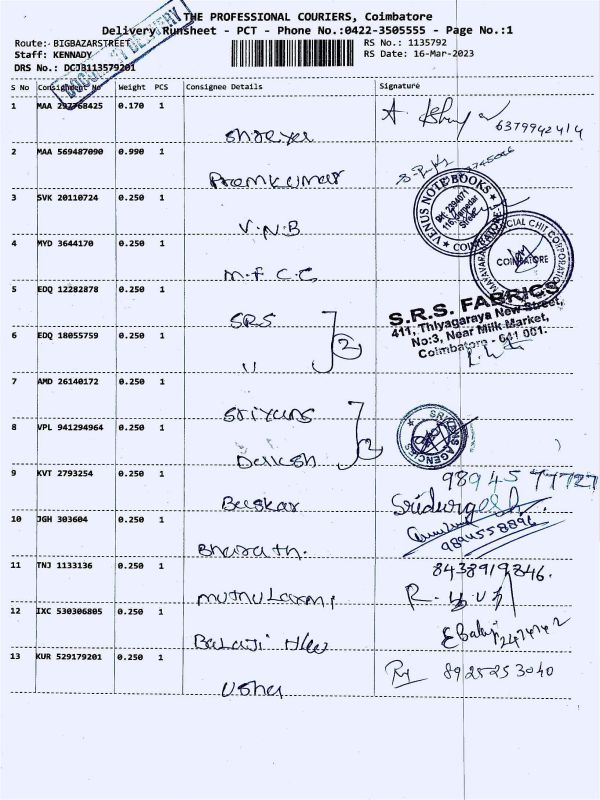 THE PROFESSIONAL COURIERS, Coimbatore
Delivery Runsheet - PCT - Phone No.:0422-3505555 - Page No.:1
Route: BIGBAZARSTREET RS No.: 1135792
Staff: KENNADY RS Date: 16-Mar-2023
DRS No.: DCJB113579201
DOCUMENT DELIVERY
S No Consignment No Weight PCS Consignee Details Signature
1 MAA 297768425 0.170 1 Shreya 6379942414
2 MAA 569487090 0.990 1 Premkumar
3 SVK 20110724 0.250 1 V.N.B
VENUS NOTE BOOKS
COIMBATORE
4 MYD 3644170 0.250 1 M.F.C.C
COIMBATORE
5 EDQ 12282878 0.250 1 SRS
S.R.S. FABRICS
411, Thiyagaraya New Street,
No:3, Near Milk Market,
Coimbatore - 641 001.
6 EDQ 18055759 0.250 1 " 2
7 AMD 26140172 0.250 1 Sriyans
8 VPL 941294964 0.250 1 2
SRIYANS AGENCIES
9 KVT 2793254 0.250 1 Baskar 98945 77727
Sridurgesh
10 JGH 303604 0.250 1 Bharath. 9894558896
11 TNJ 1133136 0.250 1 Muthulaxmi 8438919846.
12 IXC 530306805 0.250 1 Balaji E Balaji
13 KUR 529179201 0.250 1 Usha 8925253040